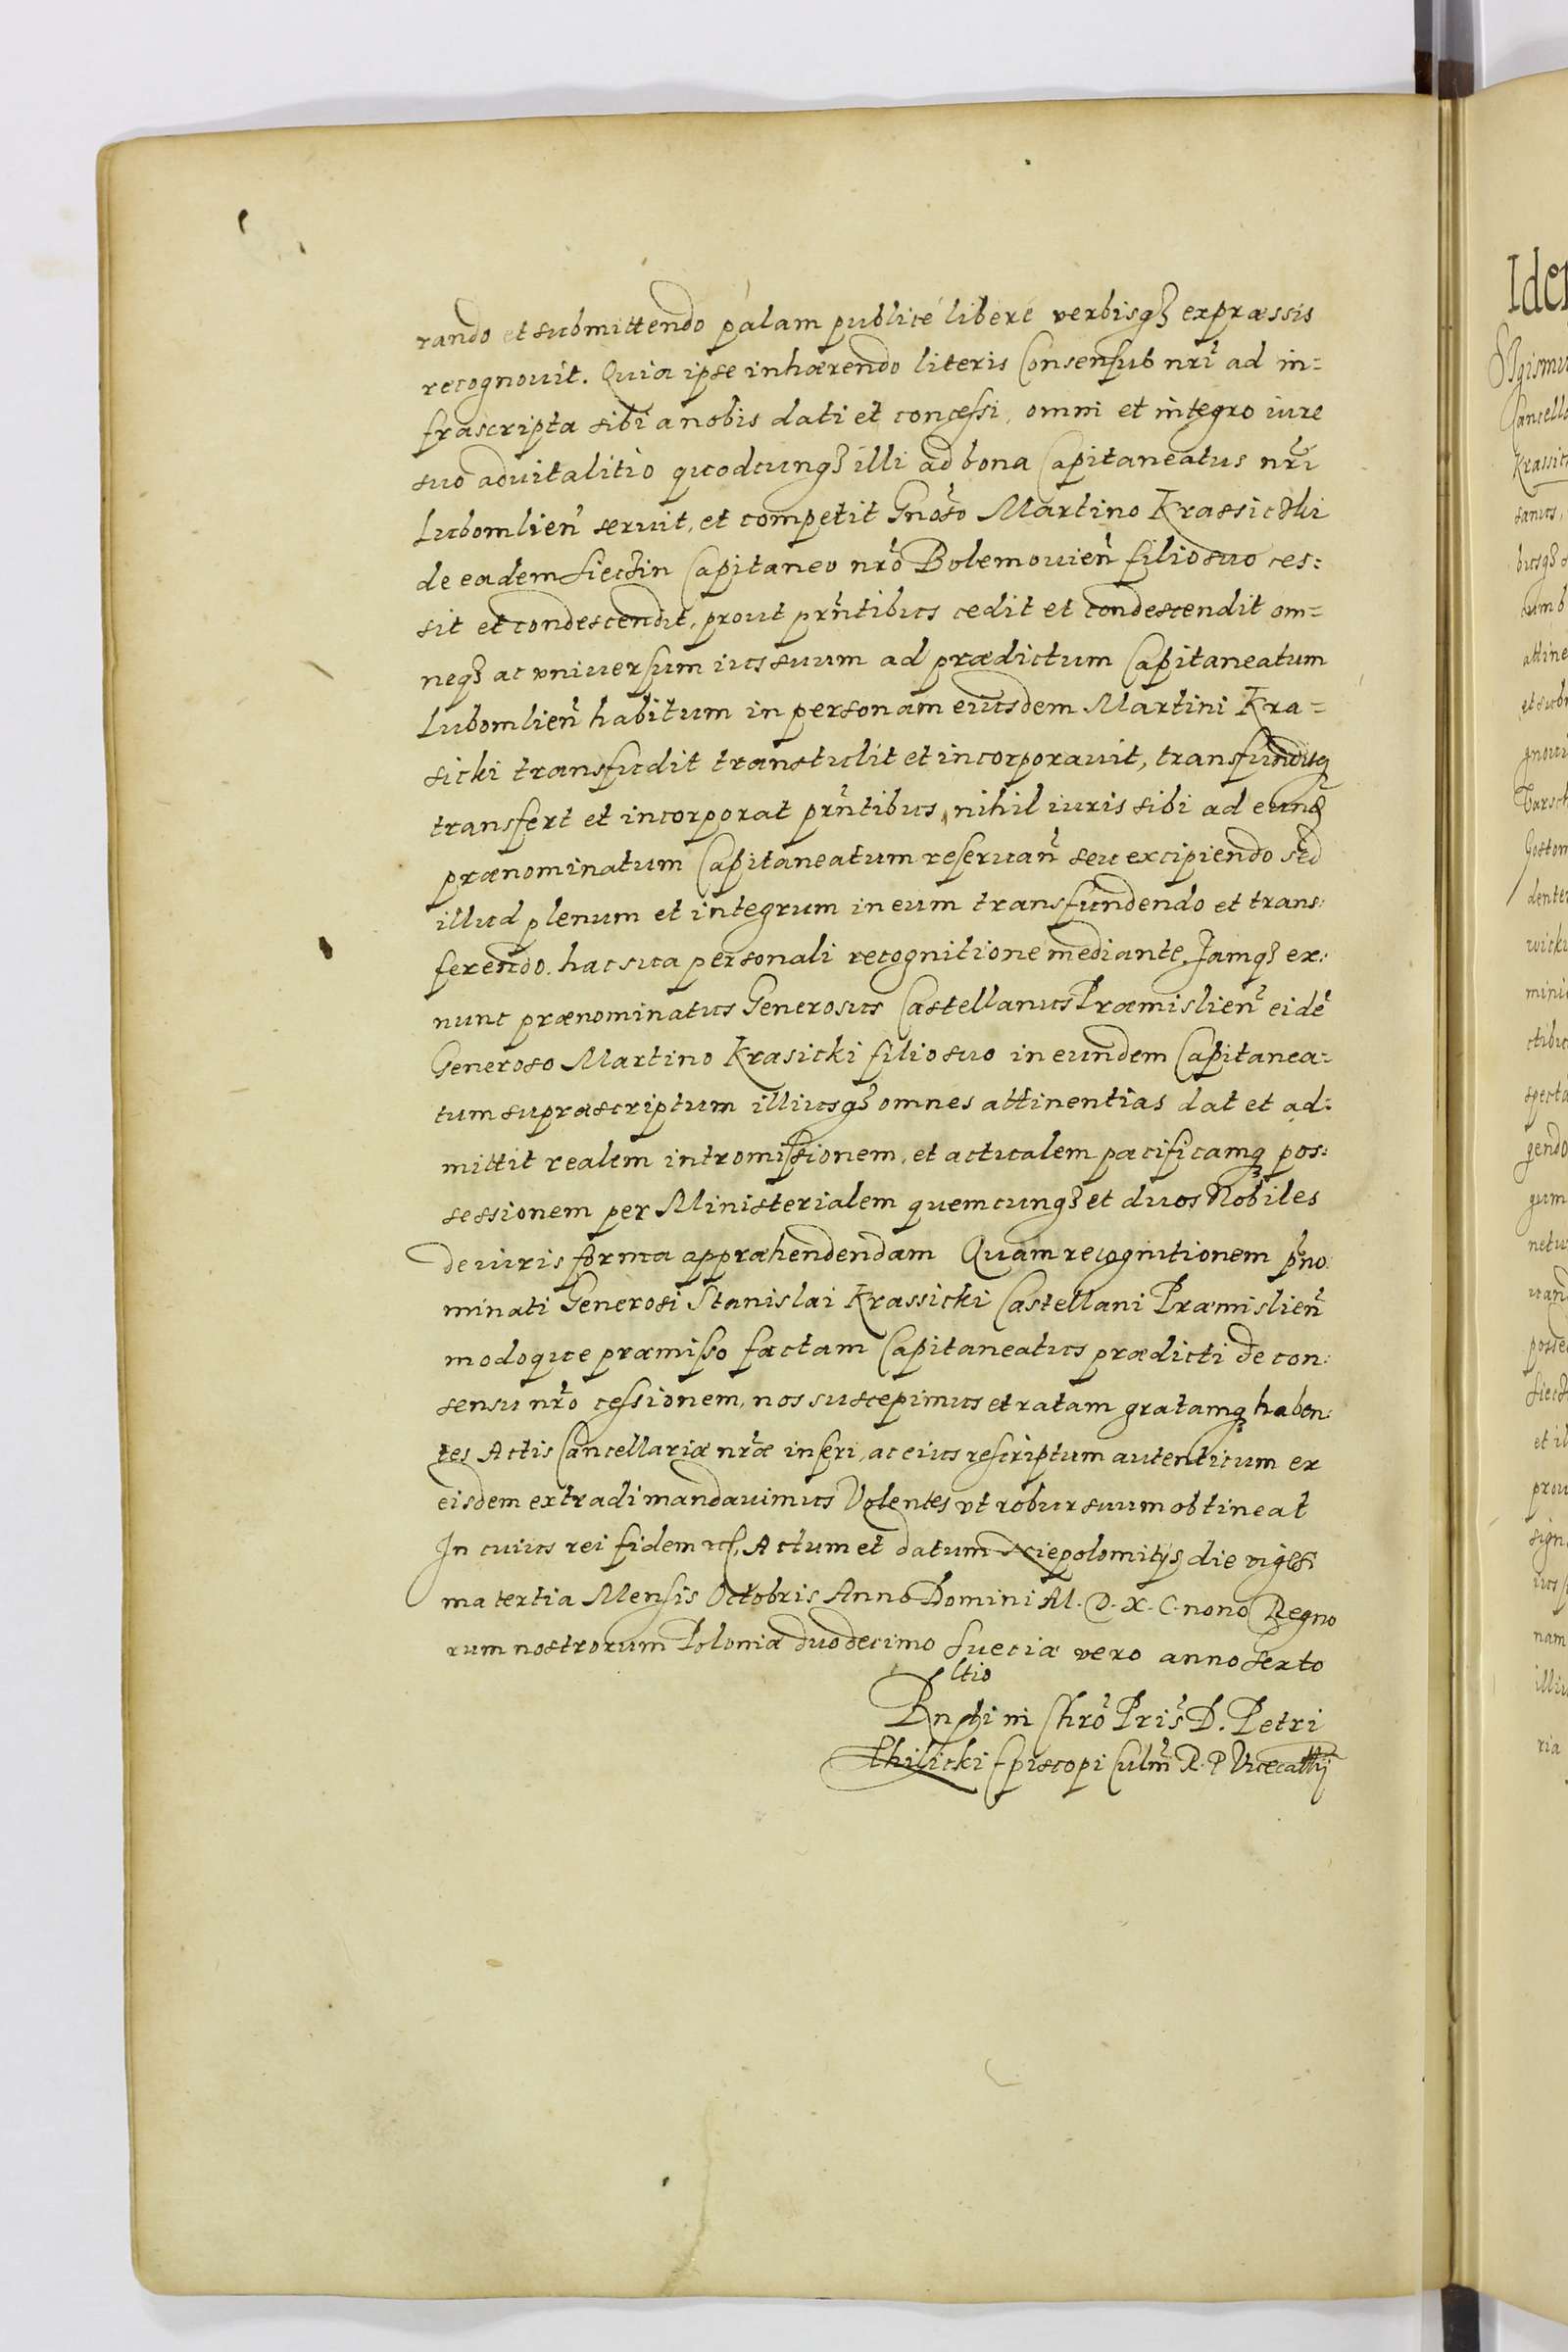 rando et submittendo palam publicé liberé verbisq₃ expræssis
recognouit. Quia ipse inhærendo literis Consensus nr̃i ad in=
frascripta sibi a nobis dati et concessi, omni et integro iure
suo aduitalitio quodcunq₃ illi ad bona Capitaneatus nr̃i
Lubomlien̄ seruit, et competit Gnoso Martino Krassicki
de eadem Sieczin Capitaneo nr̃o Bolemouien̄ filio suo ces:
sit et condescendit, prout prn̄tibus cedit et condescendit om=
neq₃ ac vniuersum ius suum ad prædictum Capitaneatum
Lubomlien̄ habitum in personam eiusdem Martini Kra=
sicki transfudit transtulit et incorporauit, transfunditq₃
transfert et incorporat prn̄tibus, nihil iuris sibi ad eund̃
prænominatum Capitaneatum reseruan̄ seu excipiendo sed
illud plenum et integrum in eum transfundendo et trans:
ferendo. hac sua personali recognitione mediante. Jamq₃ ex:
nunc prænominatus Generosus Castellanus Præmislien̄ eidē
Generoso Martino Krasicki filio suo in eundem Capitanea=
tum suprascriptum illiusq₃ omnes attinentias dat et ad:
mittit realem intromissionem, et actualem pacificamq₃ pos:
sessionem per Ministerialem quemcunq₃ et duos Nobiles
de iuris forma appræhendendam Quam recognitionem p̃no:
minati Generosi Stanislai Krassicki Castellani Præmislien̄
modoque præmisso factam Capitaneatus prædicti de con:
sensu nr̃o cessionem, nos suscepimus et ratam gratamq₃ haben:
tes Actis Cancellariæ nr̃æ inseri, ac eius rescriptum autenticum ex
eisdem extradi mandauimus Volentes vt robur suum obtineat
In cuius rei fidem etc. Actum et datum Niepolomitijs die vigesi
ma tertia Mensis Octobris Anno Domini M. D. X. C. nono Regno
rum nostrorum Poloniæ duodecimo Sueciæ vero anno sexto
ltio
Rn̄di in Chr̃o Pris D. Petri
Thilicki Episcopi Culm̄ R. P. Vicecallij
Iden